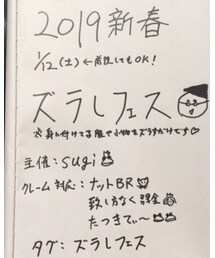 2019 新春
1/12(土)←前後してもOK!
ズラしフェス
☆身に付けてる服や小物をズラすだけです♡
主催:sugi
クレーム対応:ナットBR
致し方なく課金
たつきてぃ〜
タグ:ズラしフェス